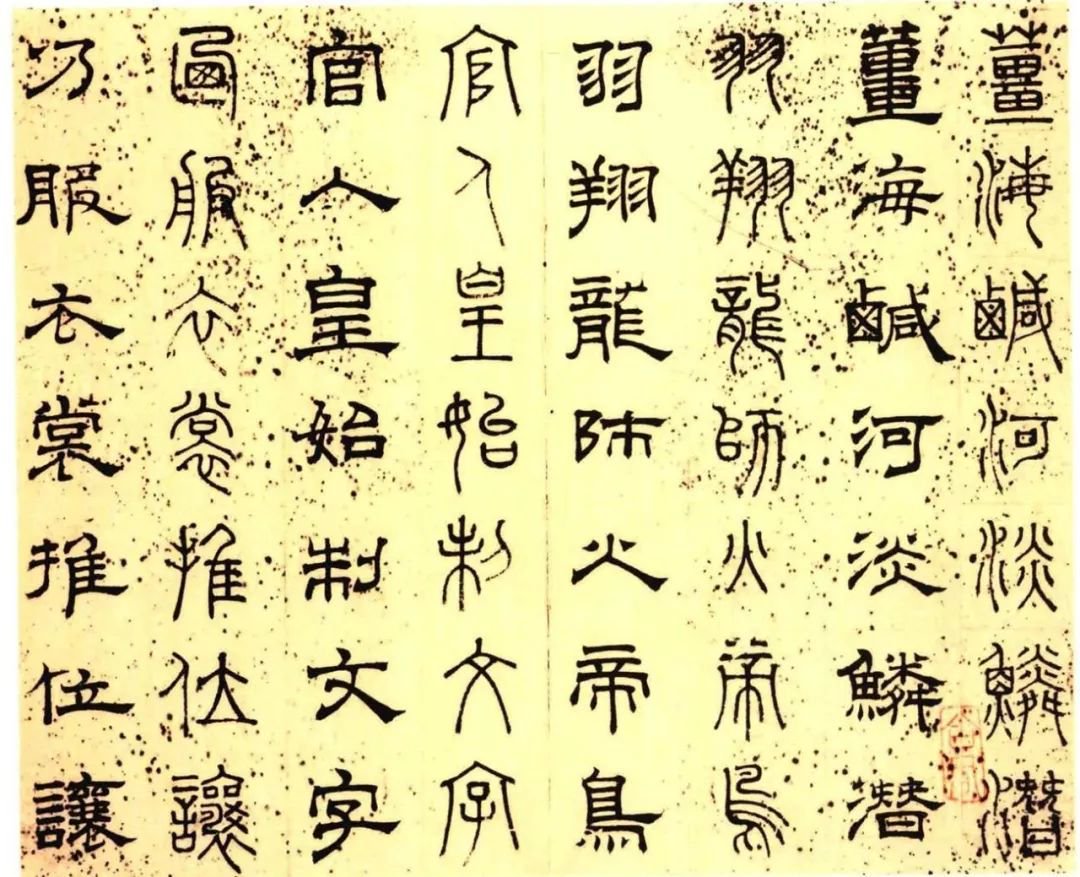 薑海鹹河淡鱗潛
薑海鹹河淡鱗潛
羽翔龍師火帝鳥
羽翔龍師火帝鳥
官人皇始制文字
官人皇始制文字
服衣裳推位讓
乃服衣裳推位讓